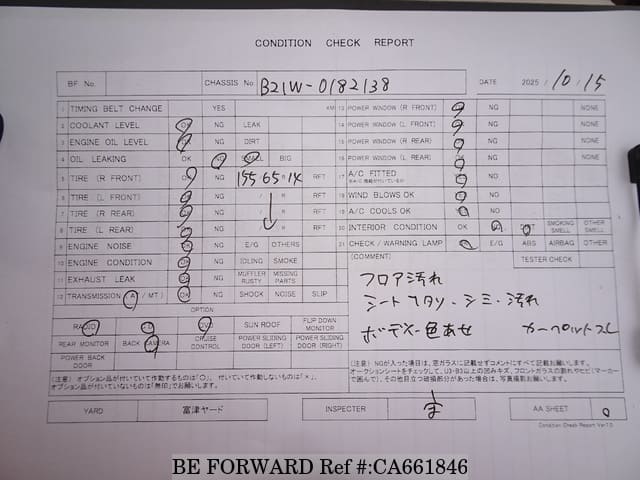 CONDITION CHECK REPORT
BF No. CHASSIS No B21W-0182138 DATE 2025/10/15
1 TIMING BELT CHANGE YES KM
2 COOLANT LEVEL OK NG LEAK
3 ENGINE OIL LEVEL OK NG DIRT
4 OIL LEAKING OK NG SMALL BIG
5 TIRE (R FRONT) OK NG 155 65 R 14 RFT
6 TIRE (L FRONT) OK NG / R RFT
7 TIRE (R REAR) OK NG / R RFT
8 TIRE (L REAR) OK NG / R RFT
9 ENGINE NOISE OK NG E/G OTHERS
10 ENGINE CONDITION OK NG IDLING SMOKE
11 EXHAUST LEAK OK NG MUFFLER RUSTY MISSING PARTS
12 TRANSMISSION (A / MT) OK NG SHOCK NOISE SLIP
OPTION
RADIO CD DVD SUN ROOF FLIP DOWN MONITOR
REAR MONITOR BACK CAMERA CRUISE CONTROL POWER SLIDING DOOR (LEFT) POWER SLIDING DOOR (RIGHT)
POWER BACK DOOR
(注意) オプション品が付いていて作動するものは「○」、付いていて作動しないものは「×」、
オプション品が付いていないものは「無印」でお願いします。
13 POWER WINDOW (R FRONT) OK NG NONE
14 POWER WINDOW (L FRONT) OK NG NONE
15 POWER WINDOW (R REAR) OK NG NONE
16 POWER WINDOW (L REAR) OK NG NONE
17 A/C FITTED NO
18 WIND BLOWS OK NO
19 A/C COOLS OK NO
20 INTERIOR CONDITION OK NG SMOKING SMELL OTHER SMELL
21 CHECK / WARNING LAMP E/G ABS AIRBAG OTHER
(COMMENT) TESTER CHECK
フロア汚れ
シートヘタリ・シミ・汚れ
ボデx-色あせ カーペットスレ
(注意) NGが入った項目は、窓ガラスに記載せずコメントにすべて記載お願いします。
オークションシートをチェックして、U3・B3以上の凹みキズ、フロントガラスの割れやヒビ(マーカー
で囲んで)、その他目立つ破損部分があった場合は、写真撮影お願いします。
YARD 富津ヤード INSPECTER ま AA SHEET 0
Condition Check Report Ver7.0
BE FORWARD Ref #:CA661846